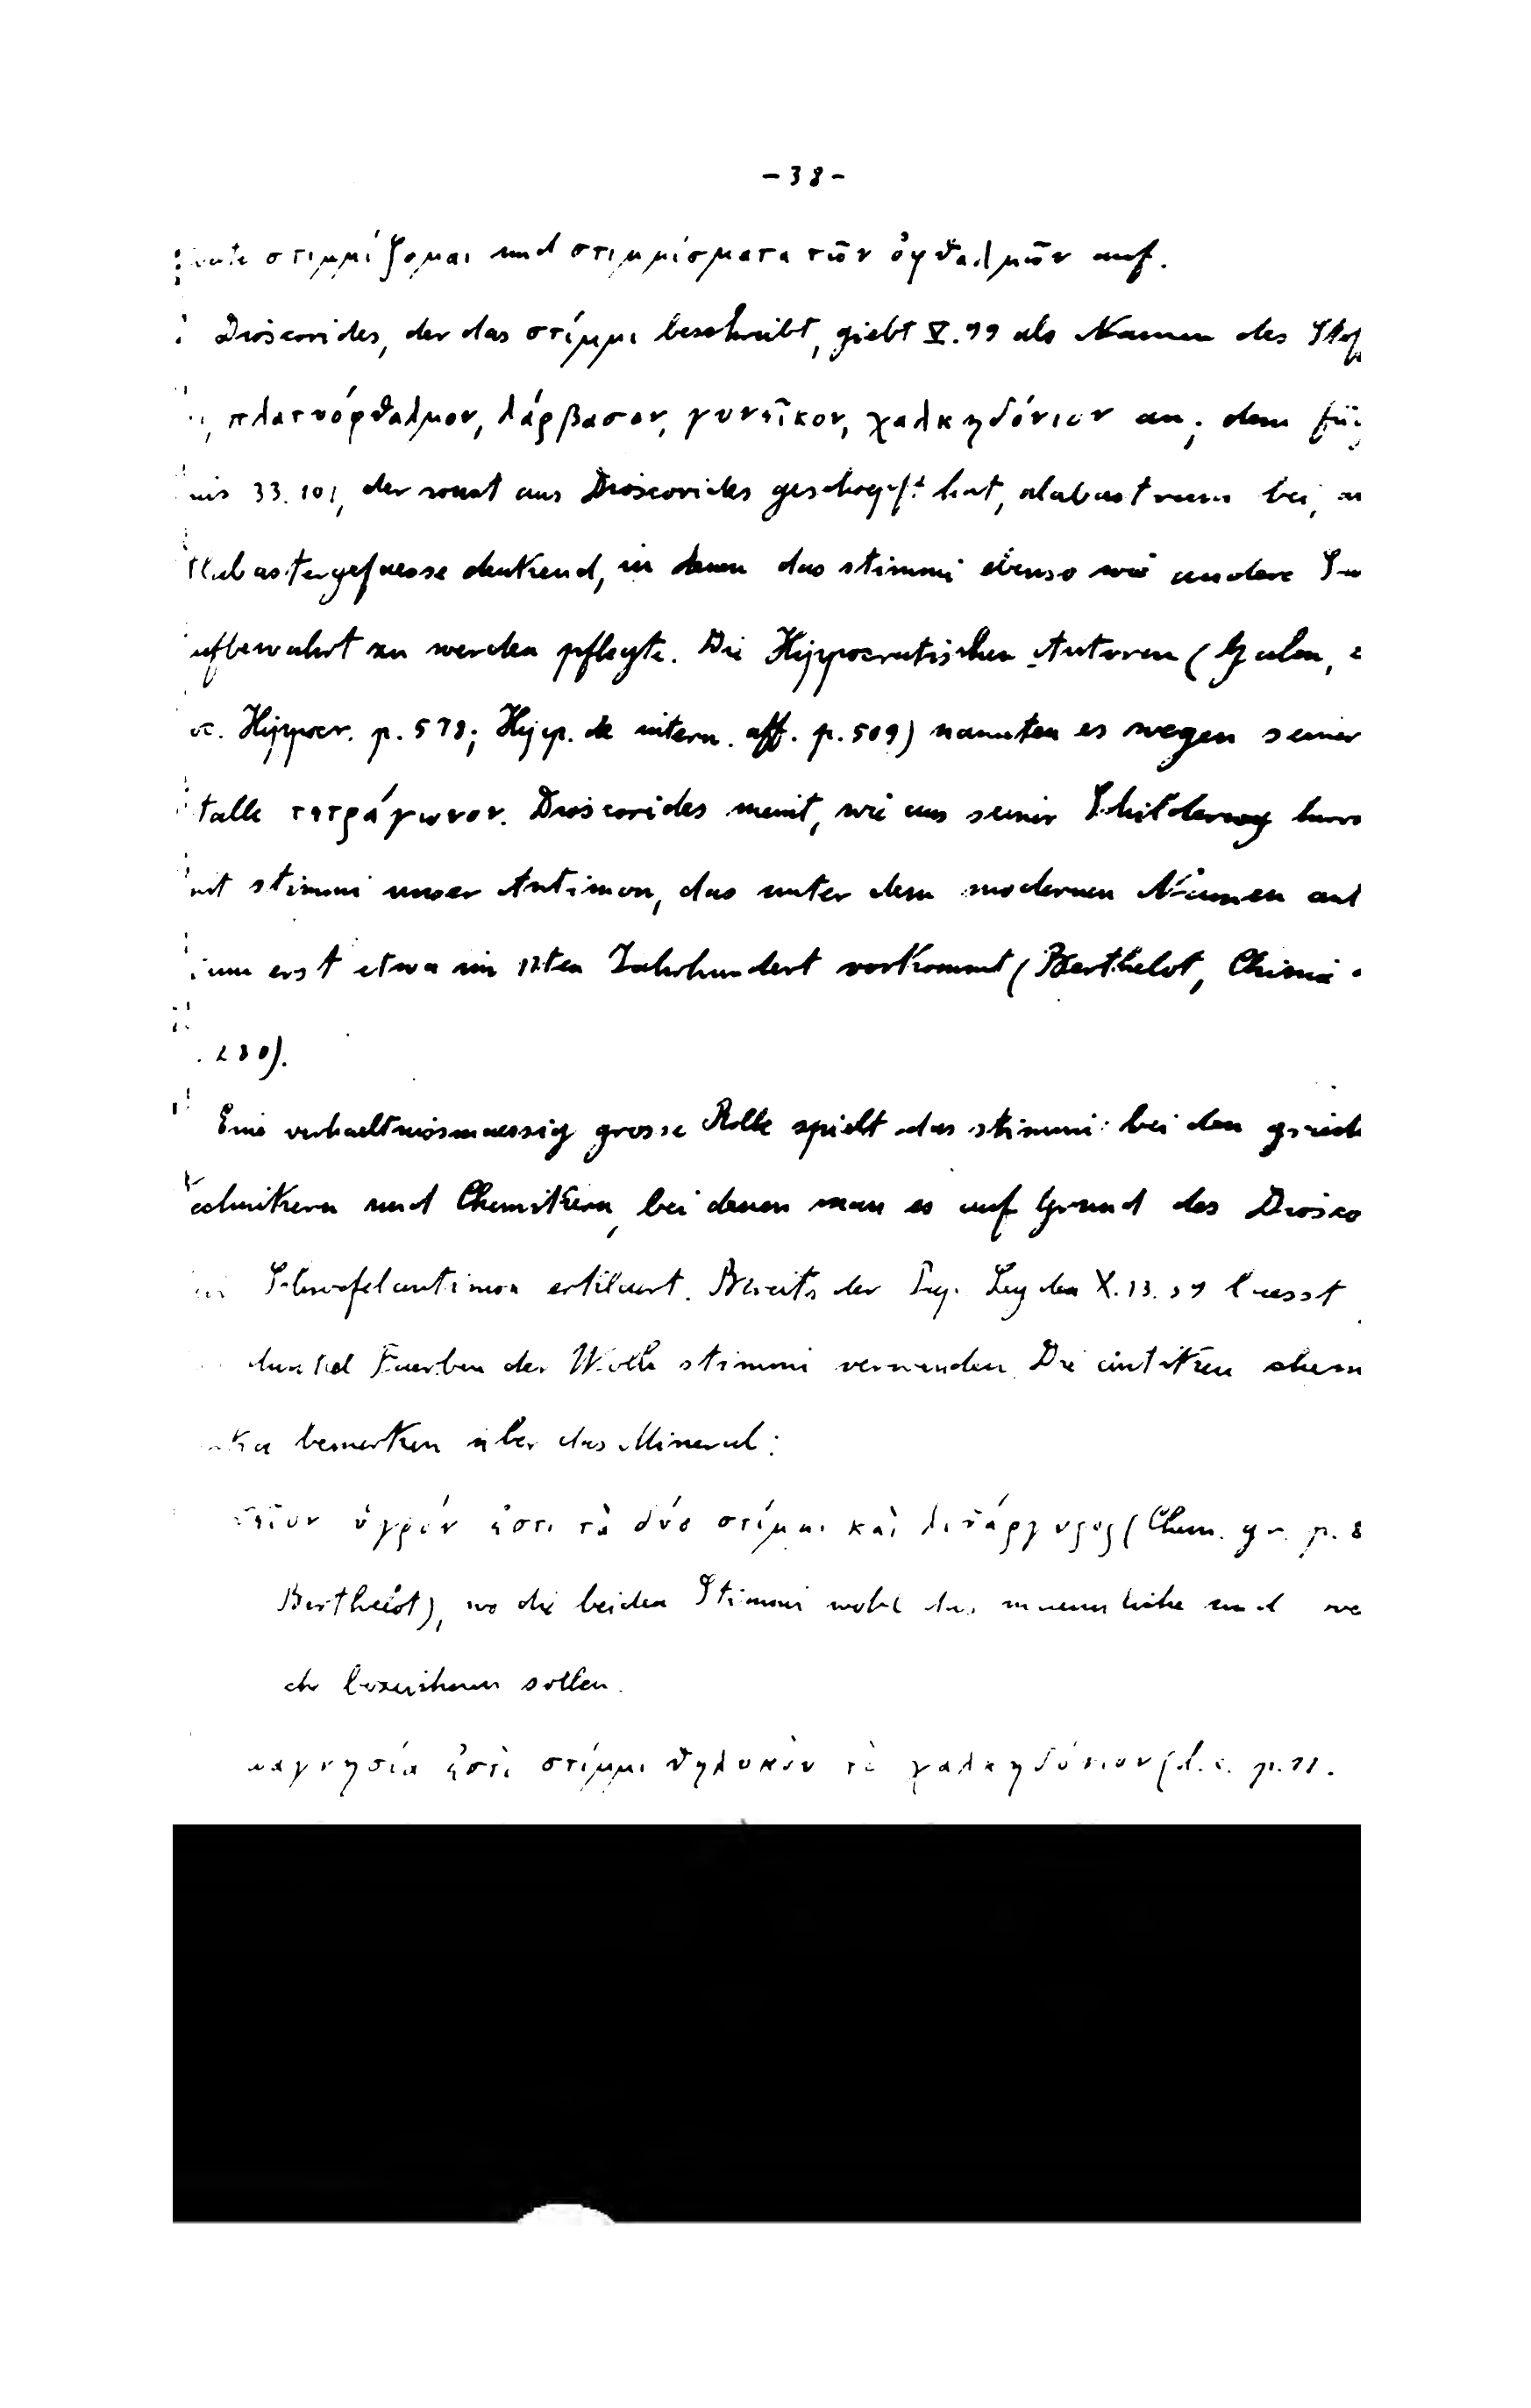 -38-
στιμμίζομαι und στιμμίσματα τῶν ὀφθαλμῶν auf.
Dioscorides, der das στίμμι beschreibt, giebt V.99 als Namen des
πλατυόφθαλμον, λάρβασον, γυνεῖκον, χαλκηδόνιον an; dem
33.101, der sonst aus Dioscorides geschoepft hat, alabastrum bei,
denkend, in denen das stimmi ebenso wie andere
ufbewahrt zu werden pflegte. Die Hippocratischen Autoren (Galen,
Hippocr. p. 578; Hipp. de intern. aff. p. 509) nannten es wegen seiner
talle τετράγωνον. Dioscorides meint, wie aus seiner Schilderung
stimmi unser Antimon, das unter dem modernen Namen ant
ium erst etwa im 12ten Jahrhundert vorkommt (Berthelot, Chimie
280).
Eine verhaeltnissmaessig grosse Rolle spielt das stimmi bei den griech
echnikern und Chemikern, bei denen man es auf Grund des Diosco
Schwefelantimon erklaert. Bereits der Pap. Leyden X.13. laesst
dunkel Faerben der Wolle stimmi verwenden. Die antiken chem
bemerken über das Mineral:
ὑγρόν ἐστι τὰ δύο στίμμι καὶ λιθάργυρος (Chem. gr. p. 8
Berthelot), wo die beiden Stimmi wohl das maennliche und we
che bezeichnen sollen.
μαγνησία ἐστὶ στίμμι θηλυκὸν τὸ χαλκηδόνιον (l. c. p.